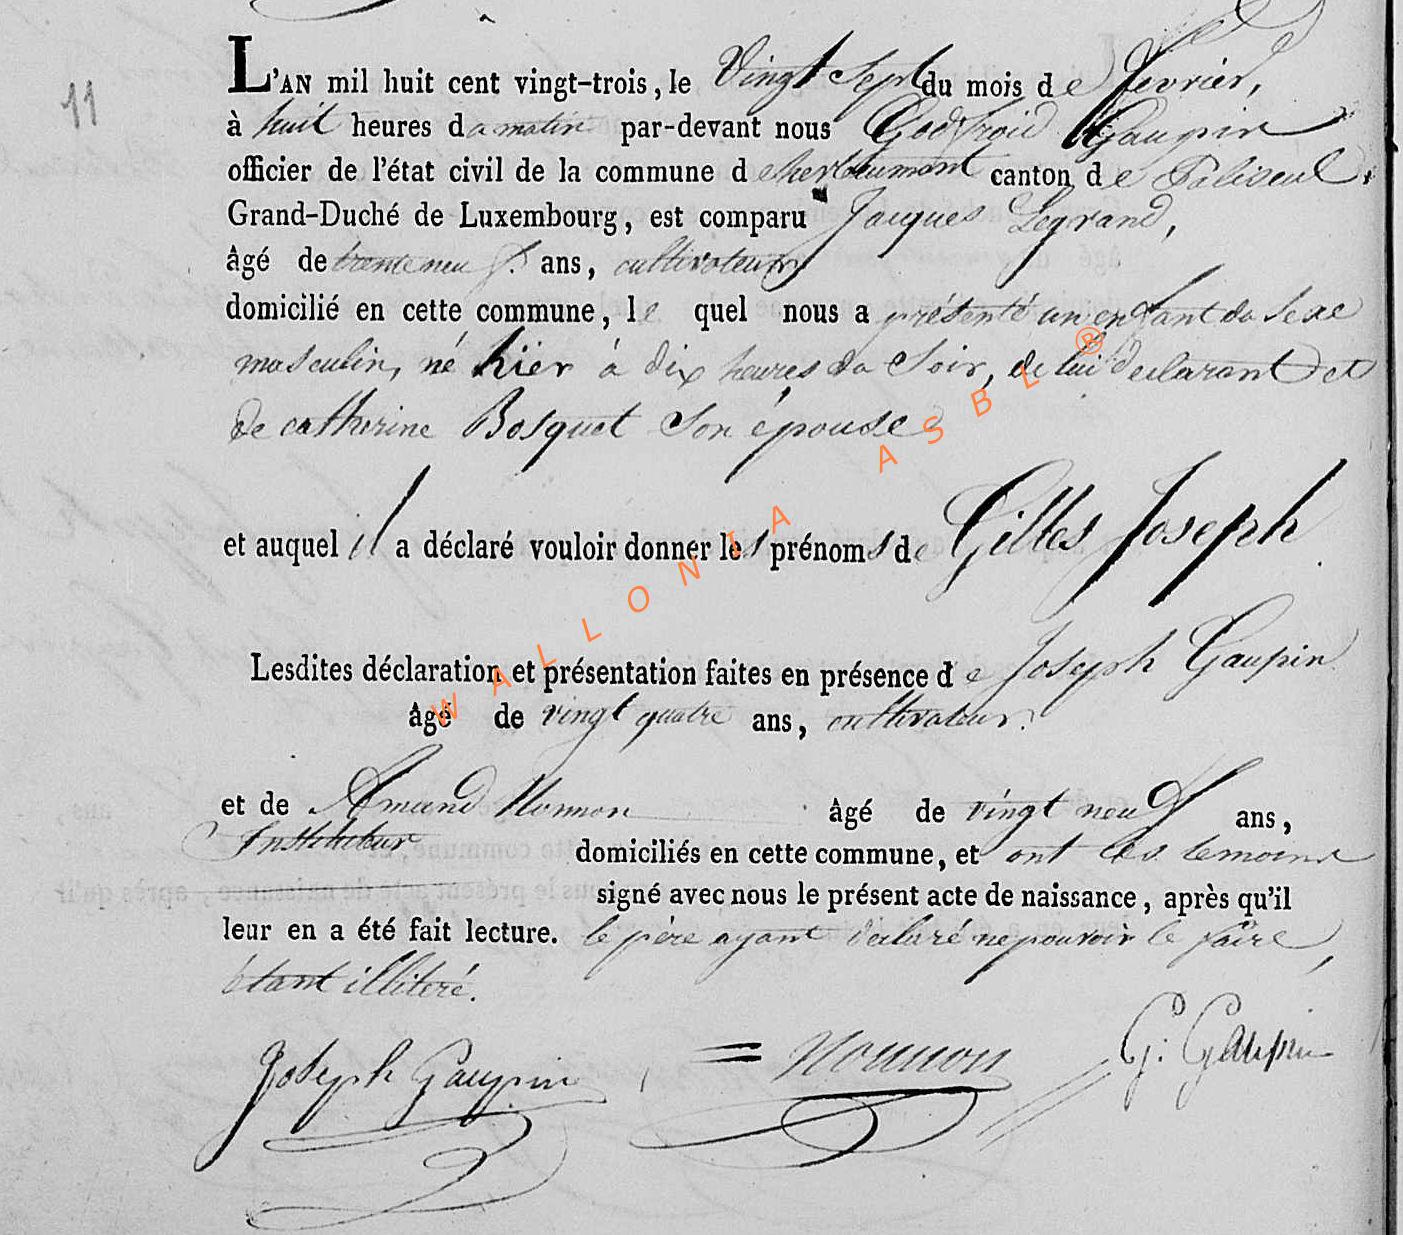 11
L'AN mil huit cent vingt-trois, le Vingt Sept du mois de fevrier,
à huit heures da matin par-devant nous Godfroid Gaupin
officier de l'état civil de la commune d'herbeumont canton de Paliseul,
Grand-Duché de Luxembourg, est comparu Jacques Legrand,
âgé de trente neuf ans, cultivateur
domicilié en cette commune, le quel nous a présenté un enfant du Sexe
masculin, né hier à dix heures du Soir, de lui declarant et
de catherine Bosquet Son épouse
et auquel il a déclaré vouloir donner les prénoms de Gilles Joseph
Lesdites déclaration et présentation faites en présence de Joseph Gaupin
âgé de vingt quatre ans, cultivateur.
et de Amand Monnon âgé de vingt neuf ans,
Instituteur domiciliés en cette commune, et ont les temoins
signé avec nous le présent acte de naissance, après qu'il
leur en a été fait lecture. le père ayant declaré ne pouvoir le faire,
étant illitéré.
Joseph Gaupin Monnon G: Gaupin
WALLONIA ASBL ®